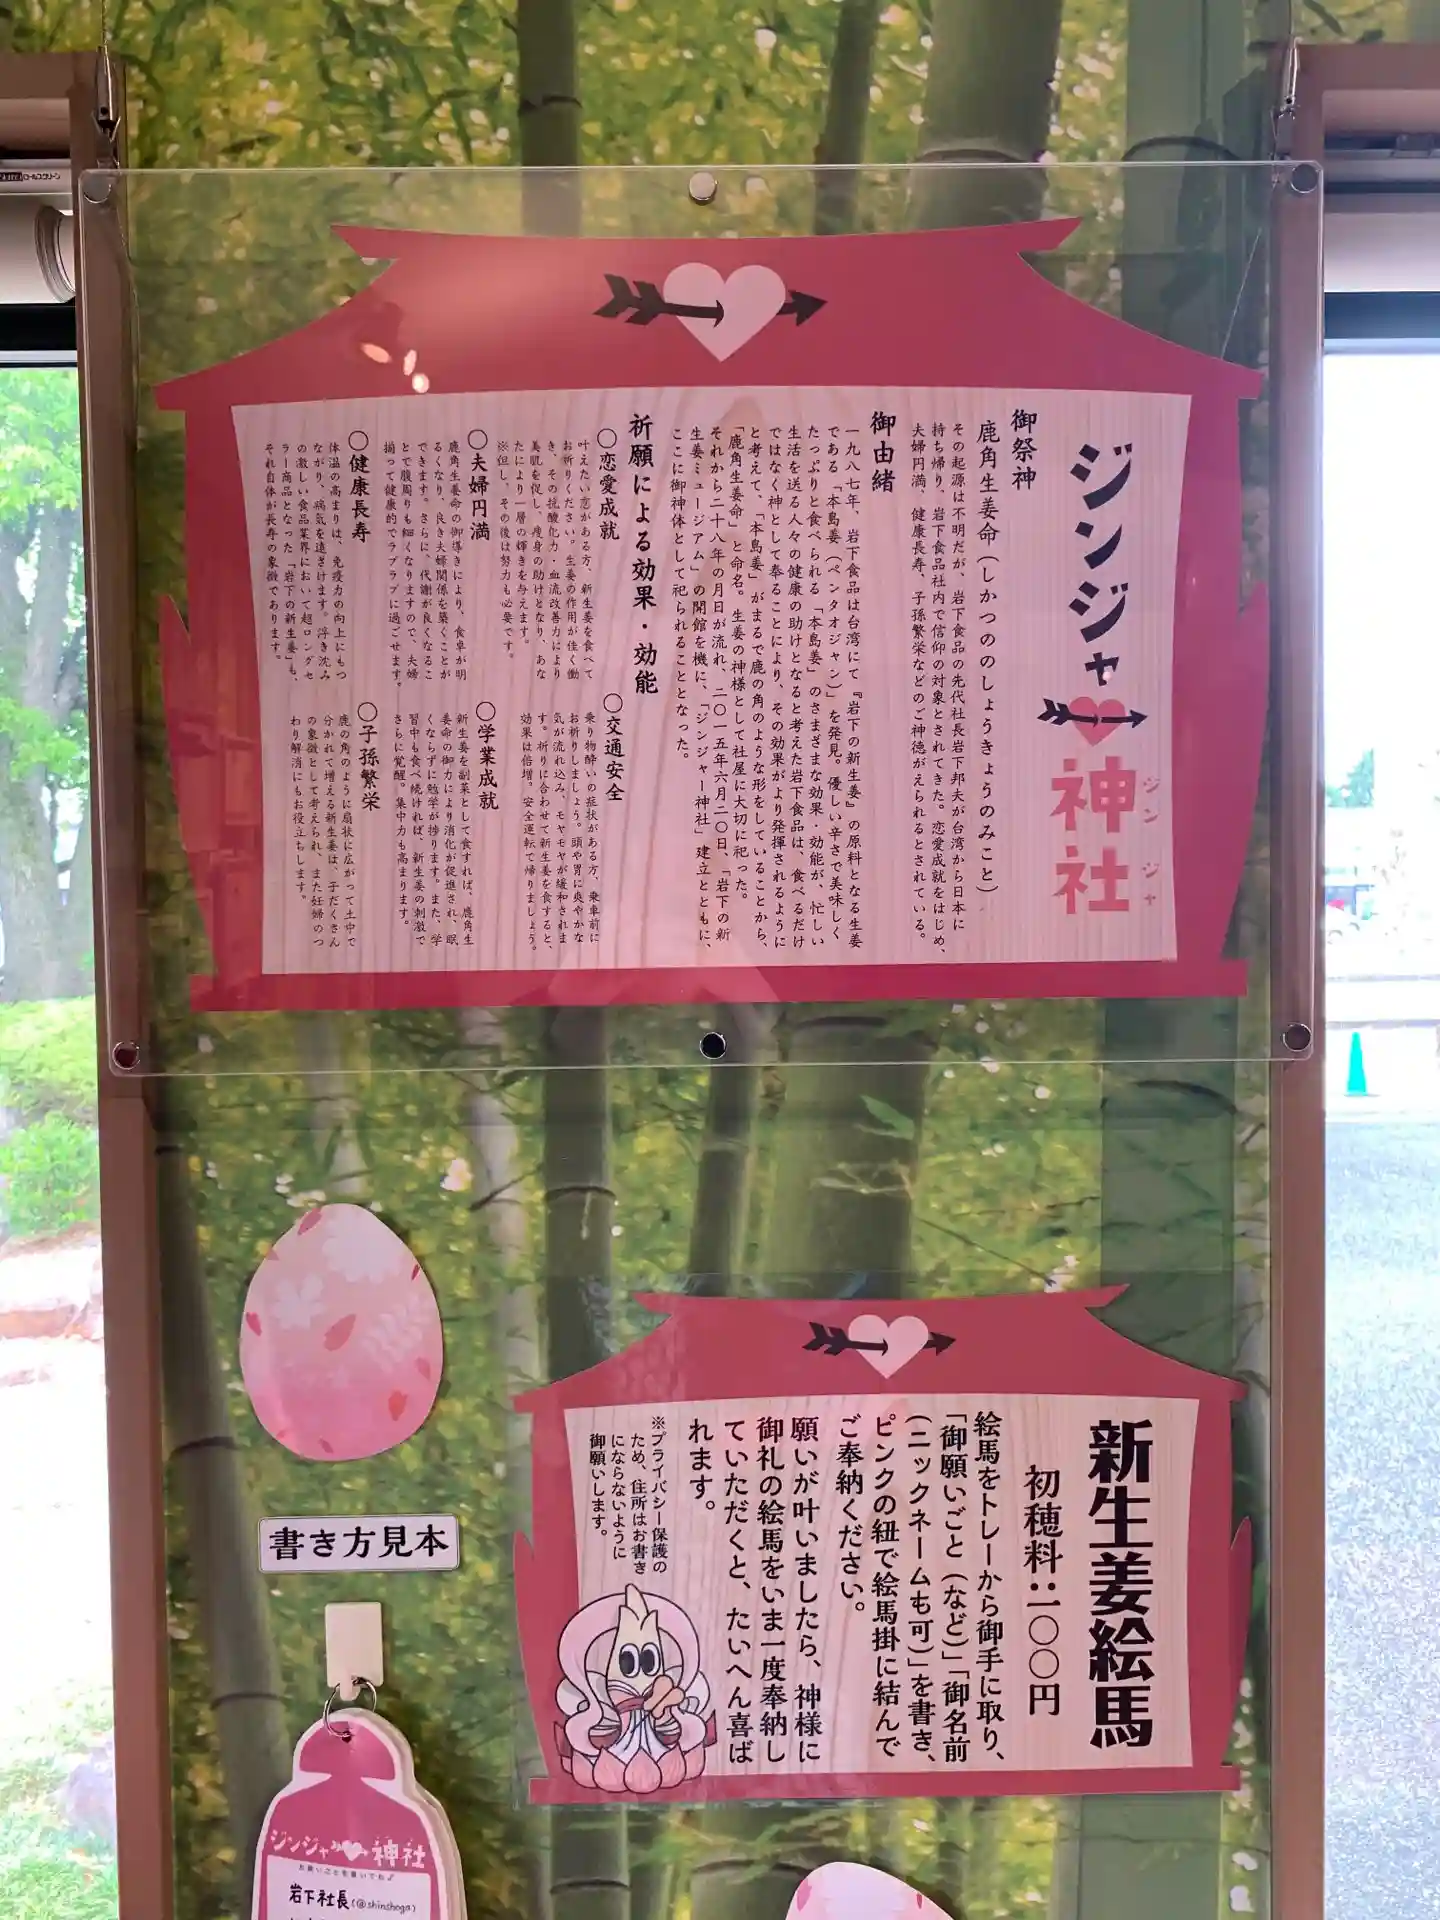 ロールスクリーン
ジンジャー神社
ジンジャ
御祭神
鹿角生姜命（しかつののしょうきょうのみこと）
その起源は不明だが、岩下食品の先代社長岩下邦夫が台湾から日本に
持ち帰り、岩下食品社内で信仰の対象とされてきた。恋愛成就をはじめ、
夫婦円満、健康長寿、子孫繁栄などのご神徳がえられるとされている。
御由緒
一九八七年、岩下食品は台湾にて『岩下の新生姜』の原料となる生姜
である「本島姜（ペンタオジャン）」を発見。優しい辛さで美味しく
たっぷりと食べられる「本島姜」のさまざまな効果・効能が、忙しい
生活を送る人々の健康の助けとなると考えた岩下食品は、食べるだけ
ではなく神として奉ることにより、その効果がより発揮されるように
と考えて、「本島姜」がまるで鹿の角のような形をしていることから、
「鹿角生姜命」と命名。生姜の神様として社屋に大切に祀った。
それから二十八年の月日が流れ、二〇一五年六月二〇日、「岩下の新
生姜ミュージアム」の開館を機に、「ジンジャー神社」建立とともに、
ここに御神体として祀られることとなった。
祈願による効果・効能
〇恋愛成就
叶えたい恋がある方、新生姜を食べて
お祈りください。生姜の作用が佳く働
き、その抗酸化力・血流改善力により
美肌を促し、痩身の助けとなり、あな
たにより一層の輝きを与えます。
※但し、その後は努力も必要です。
〇交通安全
乗り物酔いの症状がある方、乗車前に
お祈りしましょう。頭や胃に爽やかな
気が流れ込み、モヤモヤが緩和されま
す。祈りに合わせて新生姜を食すると、
効果は倍増。安全運転で帰りましょう。
〇夫婦円満
鹿角生姜命の御導きにより、食卓が明
るくなり、良き夫婦関係を築くことが
できます。さらに、代謝が良くなるこ
とで腹周りも細くなりますので、夫婦
揃って健康的でラブラブに過ごせます。
〇学業成就
新生姜を副菜として食すれば、鹿角生
姜命の御力により消化が促進され、眠
くならずに勉学が捗ります。また、学
習中も食べ続ければ、新生姜の刺激で
さらに覚醒。集中力も高まります。
〇健康長寿
体温の高まりは、免疫力の向上にもつ
ながり、病気を遠ざけます。浮き沈み
の激しい食品業界において超ロングセ
ラー商品となった「岩下の新生姜」も、
それ自体が長寿の象徴であります。
〇子孫繁栄
鹿の角のように扇状に広がって土中で
分かれて増える新生姜は、子だくさん
の象徴として考えられ、また妊婦のつ
わり解消にもお役立ちします。
新生姜絵馬
初穂料：二〇〇円
絵馬をトレーから御手に取り、
「御願いごと（など）」「御名前
（ニックネームも可）」を書き、
ピンクの紐で絵馬掛に結んで
ご奉納ください。
願いが叶いましたら、神様に
御礼の絵馬をいま一度奉納し
ていただくと、たいへん喜ば
れます。
※プライバシー保護の
ため、住所はお書き
にならないように
御願いします。
書き方見本
ジンジャー神社
お願いごとを書いてね♪
岩下社長（@shinshoga）